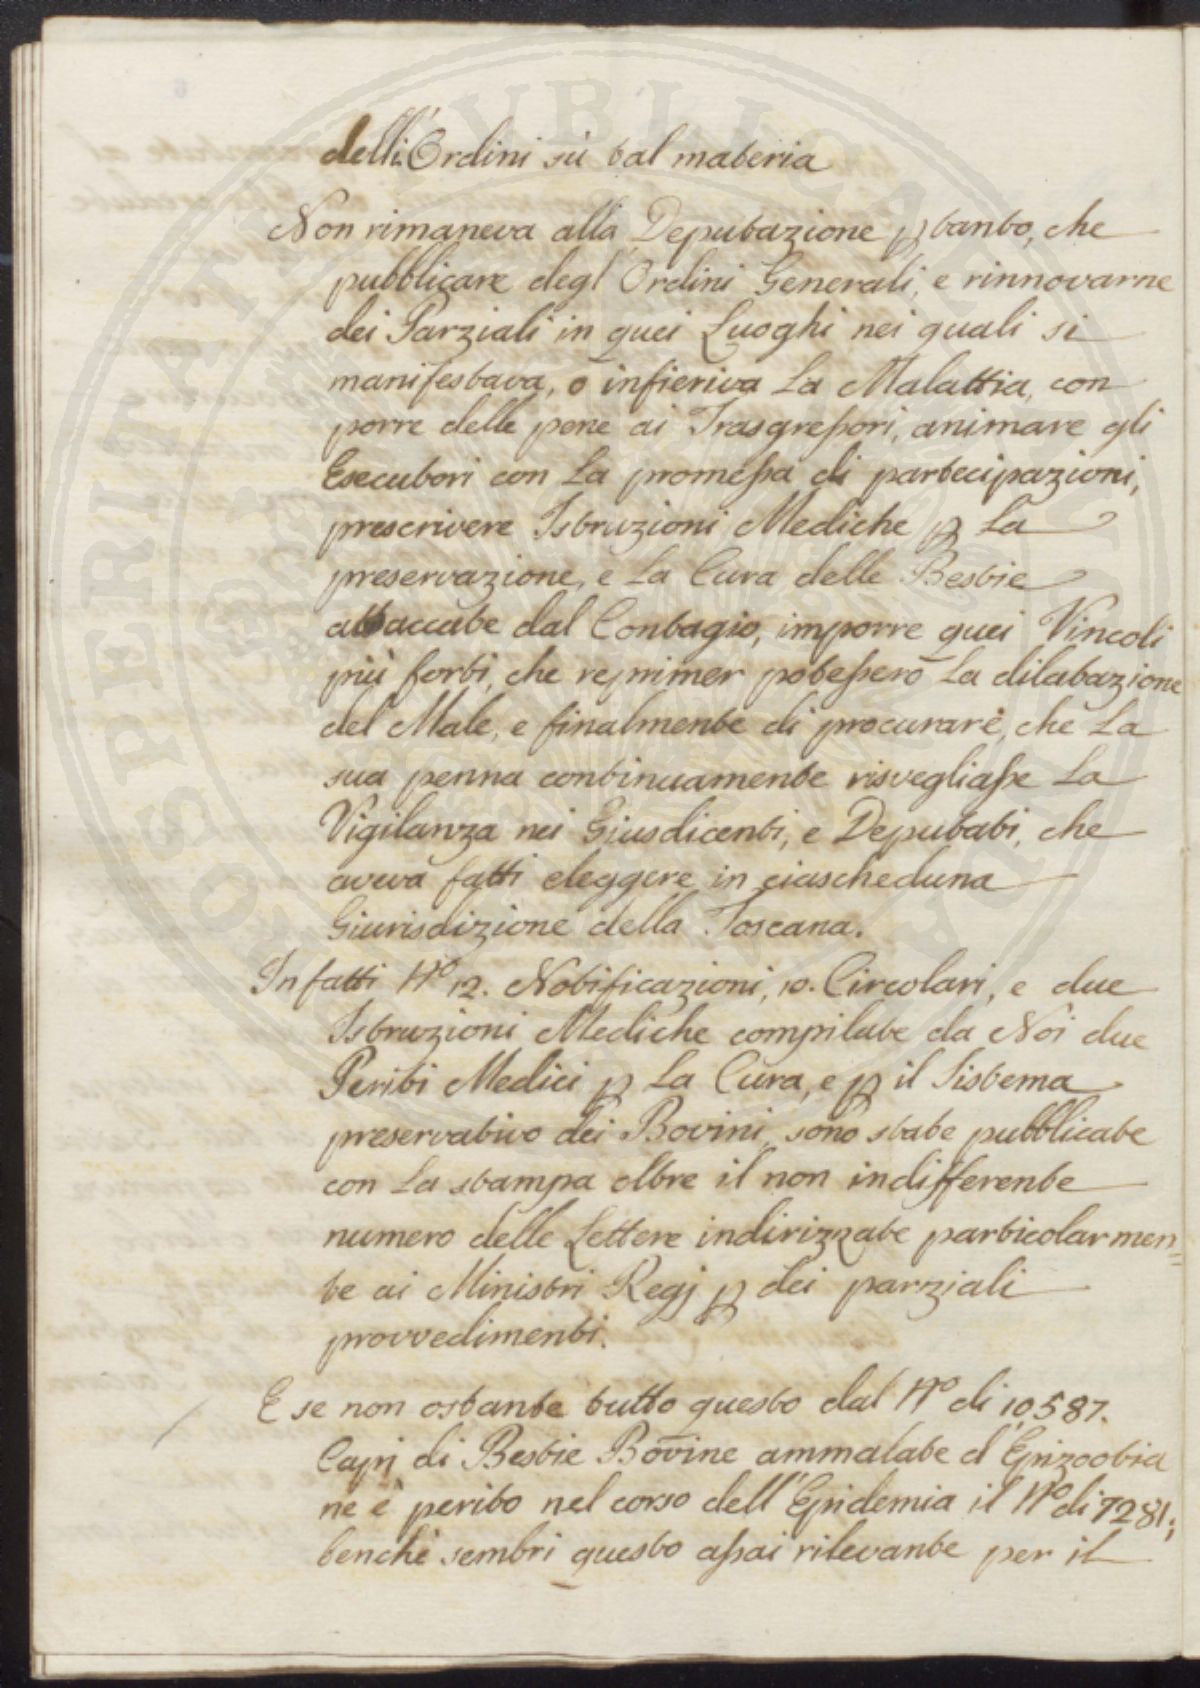 delli Ordini sù tal materia
Non rimaneva alla Deputazione ꝑ tanto, che
pubblicare degl' Ordini Generali, e rinnovarne
dei Parziali in quei Luoghi nei quali si
manifestava, o infieriva La Malattia, con
porre delle pene ai Trasgreſsori, animare gli
Esecutori con La promeſsa di partecipazioni,
prescrivere Istruzioni Mediche ꝑ La
preservazione, e La Cura delle Bestie
attaccate dal Contagio, imporre quei Vincoli
più forti, che reprimer poteſsero La dilatazione
del Male, e finalmente di procurare, che La
sua penna continuamente risvegliaſse La
Vigilanza nei Giusdicenti, e Deputati, che
aveva fatti eleggere in ciascheduna
Giurisdizione della Toscana.
In fatti N.º 12. Notificazioni, 10. Circolari, e due
Istruzioni Mediche compilate da Noi due
Periti Medici ꝑ La Cura, e ꝑ il Sistema
preservativo dei Bovini, sono state pubblicate
con La stampa oltre il non indifferente
numero delle Lettere indirizzate particolarmen=
te ai Ministri Regj ꝑ dei parziali
provvedimenti.
E se non ostante tutto questo dal N.º di 10,587.
Capi di Bestie Bovine ammalate d'Epizootia
ne è perito nel corso dell'Epidemia il N.º di 7281.;
benchè sembri questo aſsai rilevante per il
PROSPERITATI PUBLICAE